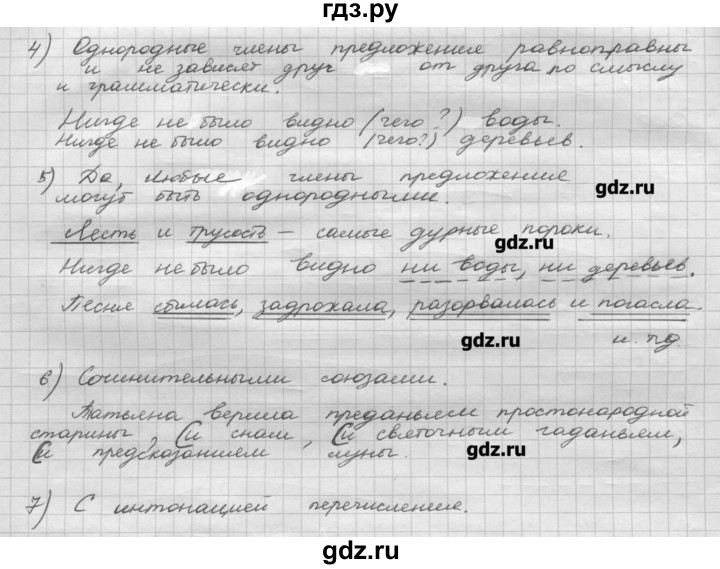 гдз.ру
4) Однородные члены предложение равноправны
и не зависят друг от друга по смыслу
и грамматически.
Нигде не было видно (чего?) воды.
Нигде не было видно (чего?) деревьев.
5) Да, любые члены предложение
могут быть однородными.
gdz.ru
Лесть и трусость – самые дурные пороки.
gdz.ru
Нигде не было видно ни воды, ни деревьев.
Песня сбилась, задрожала, разорвалась и погасла.
gdz.ru
и т.д.
6) Сочинительными союзами.
Татьяна верила преданьем простонародной
старины, и снам, и святочным гаданьем,
и предсказанием луны.
gdz.ru
7) С интонацией перечисление.
gdz.ru